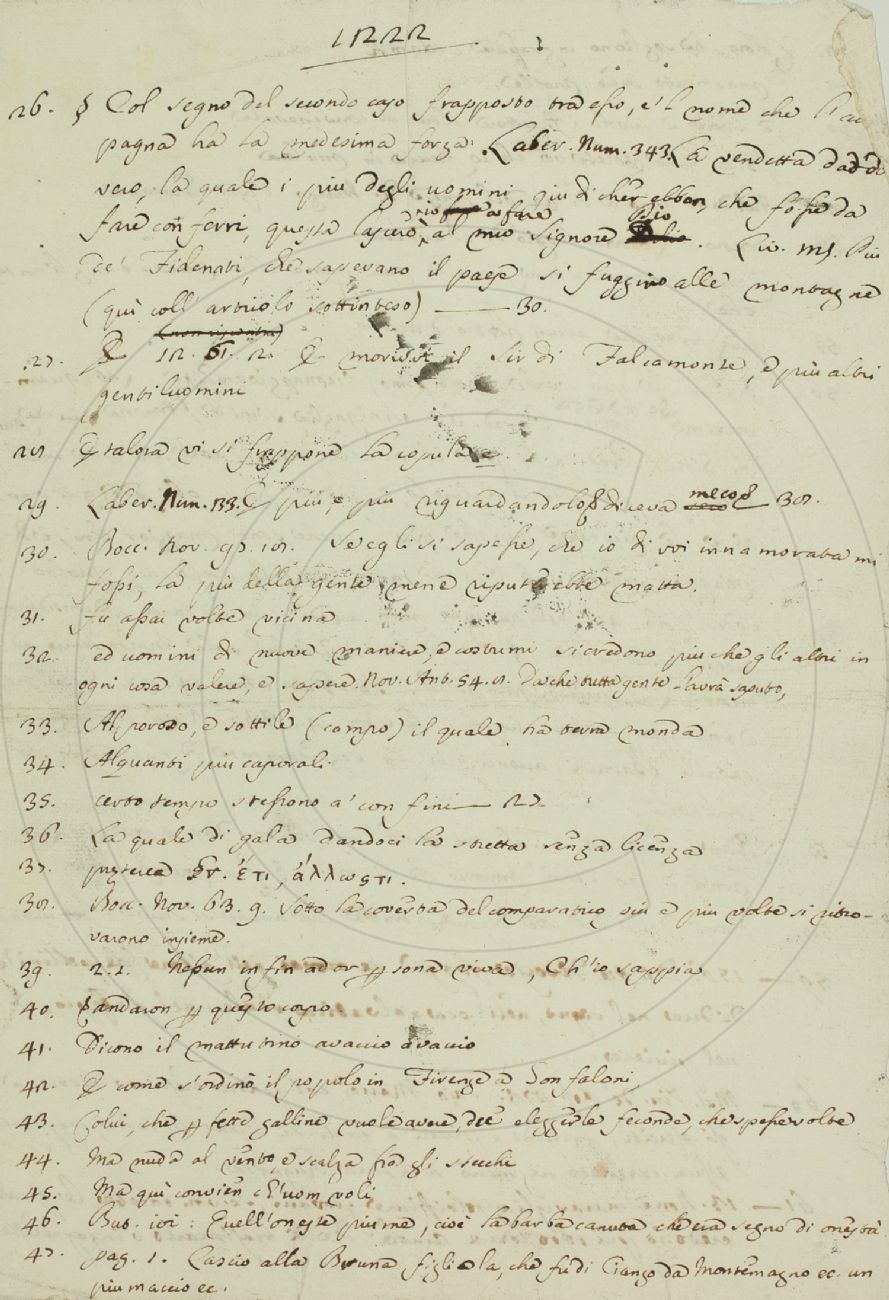 1222
26. § Col segno del secondo caso frapposto tra esso, e 'l nome che l'ac
pagna ha la medesima forza. Laber. Num. 343. La vendetta da do
vero, la quale i più degli uomini giudicherebbon, che fosse da
fare con ferri, questa lascerò a fare al mio Signore Dio. Liv. MS. Più
de' Fidenati, che sapevano il paese si fuggiro alle montagne
(quì coll' articolo sottinteso) ——— 30.
27. E 12. 61. 2. E morivvi il Sir di Falcamonte, e più altri
gentiluomini
28 E talora vi si frappone la copula e.
29. Laber. Num. 133. E più, e più riguardandolo, diceva meco 38.
30. Bocc. Nov. 98. 18. Se egli si sapesse, che io di voi innamorata mi
fossi, la più della gente mene riputerebbe matta.
31. fu assai volte vicina
32. ed uomini di nuove maniere, e costumi si credono più che gli altri in
ogni cosa valere, e sapere. Nov. Ant. 54. 8. Da che tutta gente l'avrà saputo,
33. Al poroso, e sottile (campo) il quale ha terra monda
34. Alquanti più caporali.
35. certo tempo stessono a' confini — 27.
36. La quale di gala dandoci la stretta senza licenza
37. præterea Gr. ἔτι, ἄλλωςτι.
38. Bocc. Nov. 63. 9. Sotto la coverta del comparatico più e più volte si ritro-
varono insieme.
39. 2. 2. Nessun infin ad or persona viva, Ch' io sappia
40. andaron per questo corpo.
41. Dicono il mattutino avaccio avaccio
42. E come s'ordinò il popolo in Firenze a Gonfaloni,
43. Colui, che perfette galline vuole avere, dee eleggerle feconde, che spesse volte
44. Ma nuda al vento, e scalza fra gli stecchi
45. Ma quì convien ch'uom voli
46. But. ivi: Quell' oneste piume, cioè la barba canuta che era segno di onestà
47. pag. 1. Lascio alla Bruna figliola, che fu di Ciango da Montemagno ec. un
piumaccio ec.